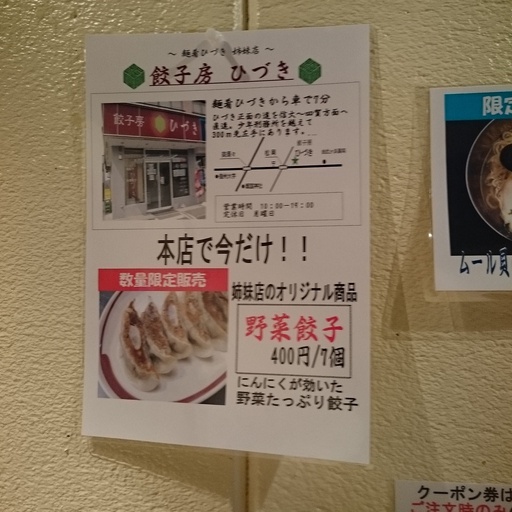 ～ 麺肴ひづき 姉妹店 ～
餃子房 ひづき
餃子房 ひづき
麺肴ひづきから車で7分
ひづき正面の道を信大～四賀方面へ
直進。少年刑務所を越えて
300m先左手にあります。
餃子房
ひづき
営業時間 10:00～19:00
定休日 月曜日
本店で今だけ！！
数量限定販売
姉妹店のオリジナル商品
野菜餃子
400円/7個
にんにくが効いた
野菜たっぷり餃子
限定
ムール貝
クーポン券は
ご注文時のみ